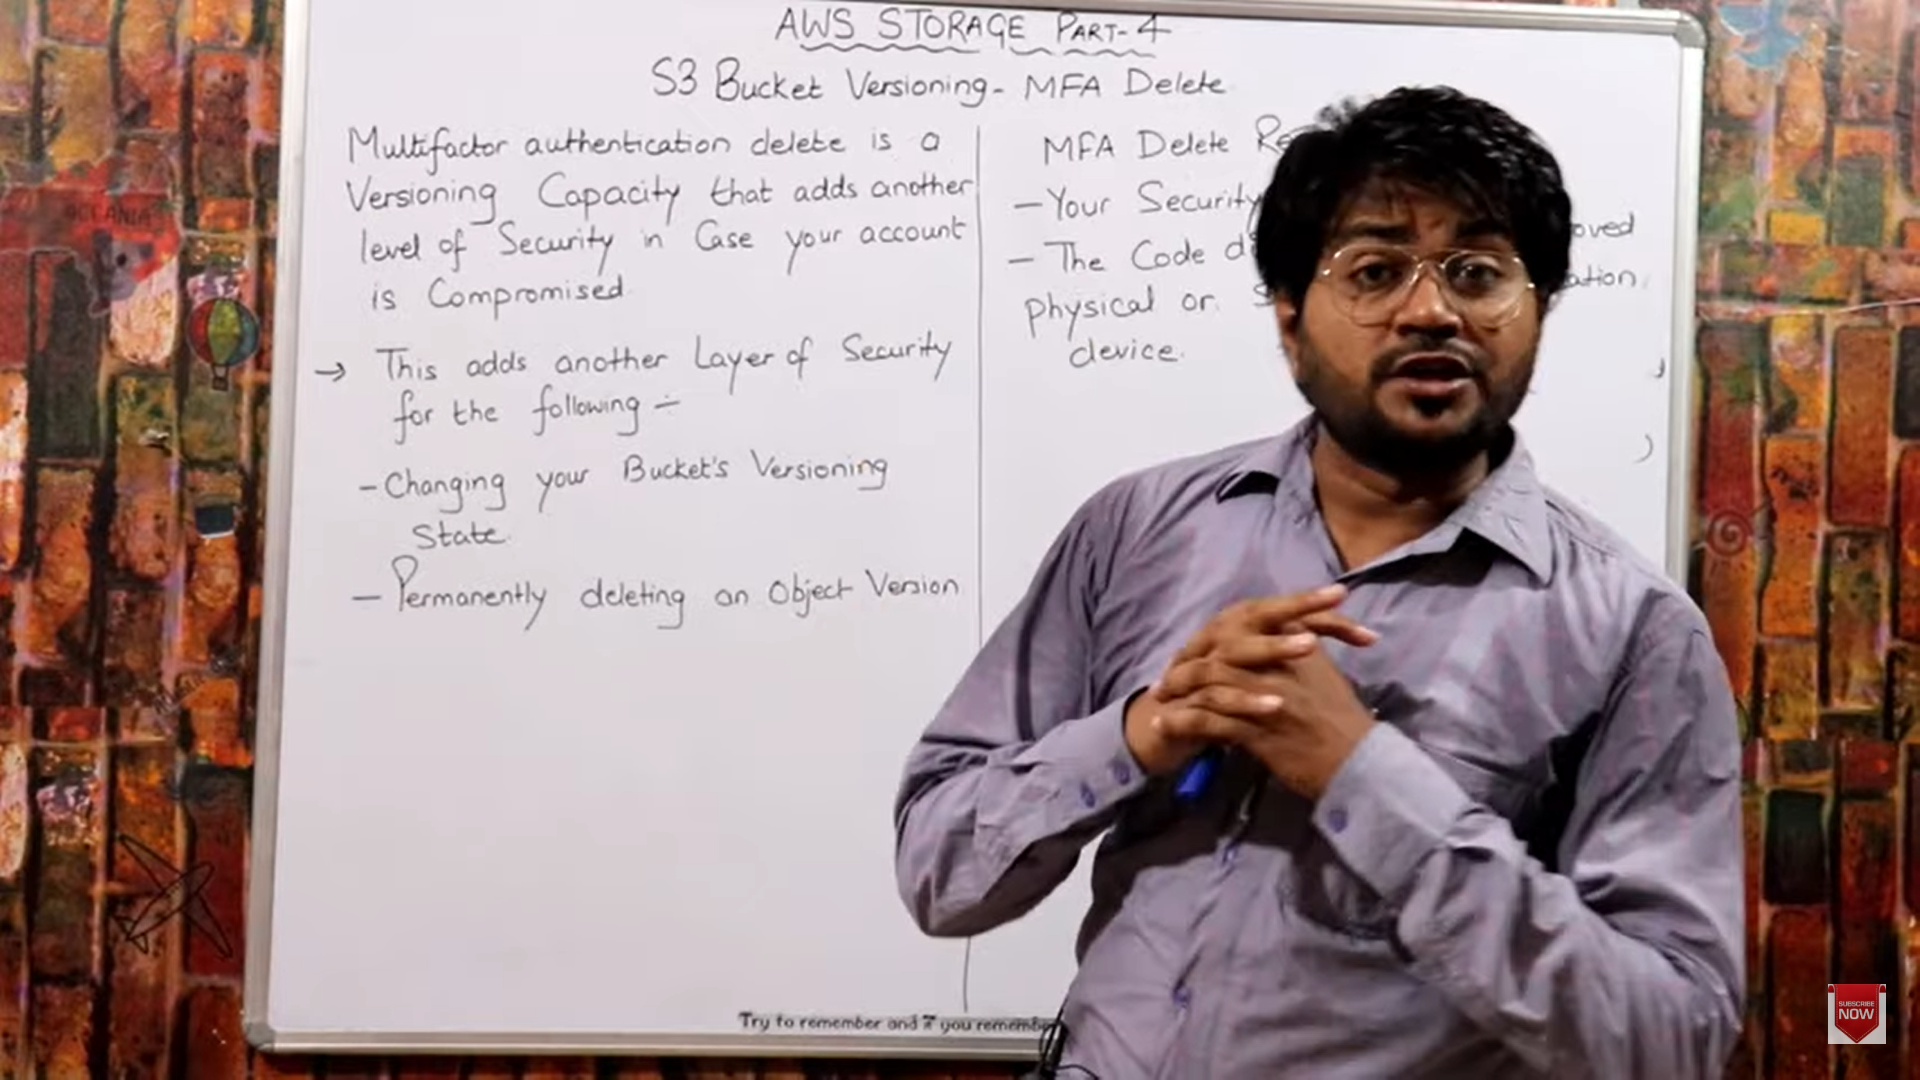 AWS STORAGE PART-4
S3 Bucket Versioning - MFA Delete
Multifactor authentication delete is a
Versioning Capacity that adds another
level of Security in Case your account
is Compromised
→ This adds another Layer of Security
for the following :-
- Changing your Bucket's Versioning
State.
- Permanently deleting an Object Version
MFA Delete
- Your Security
- The Code
physical or
device.
Try to remember and you
OCEANIA
SUBSCRIBE
NOW